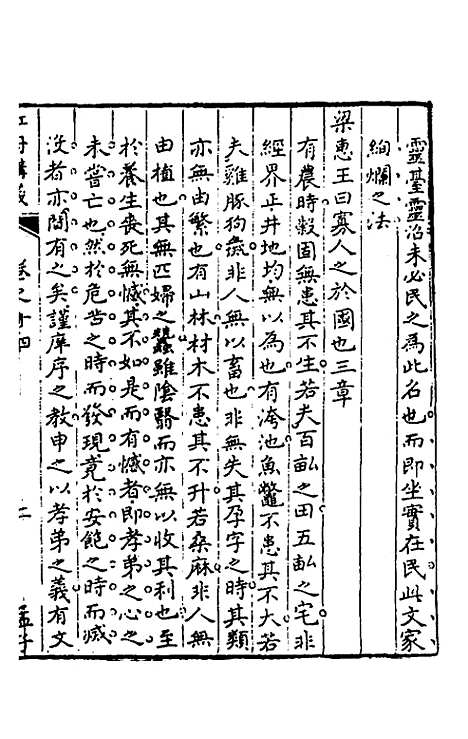 靈臺靈沼未必民之爲此名也而即坐實在民此文家
絢爛之法
梁惠王曰寡人之於國也三章
有農時穀固無患其不生若夫百畝之田五畝之宅非
經界正井地均無以為也有洿池魚鼈不患其不大若
夫雞豚狗彘非人無以畜也非無失其孕字之時其類
亦無由繁也有山林材木不患其不升若桑麻非人無
由植也其無匹婦之蠶雖陰翳而亦無以收其利也至
於養生喪死無憾其不如是而有憾者即孝弟之心之
未嘗亡也然於危苦之時而發現竟於安飽之時而滅
没者亦閒有之矣謹庠序之教申之以孝弟之義有文
講義
卷之十四
孟子